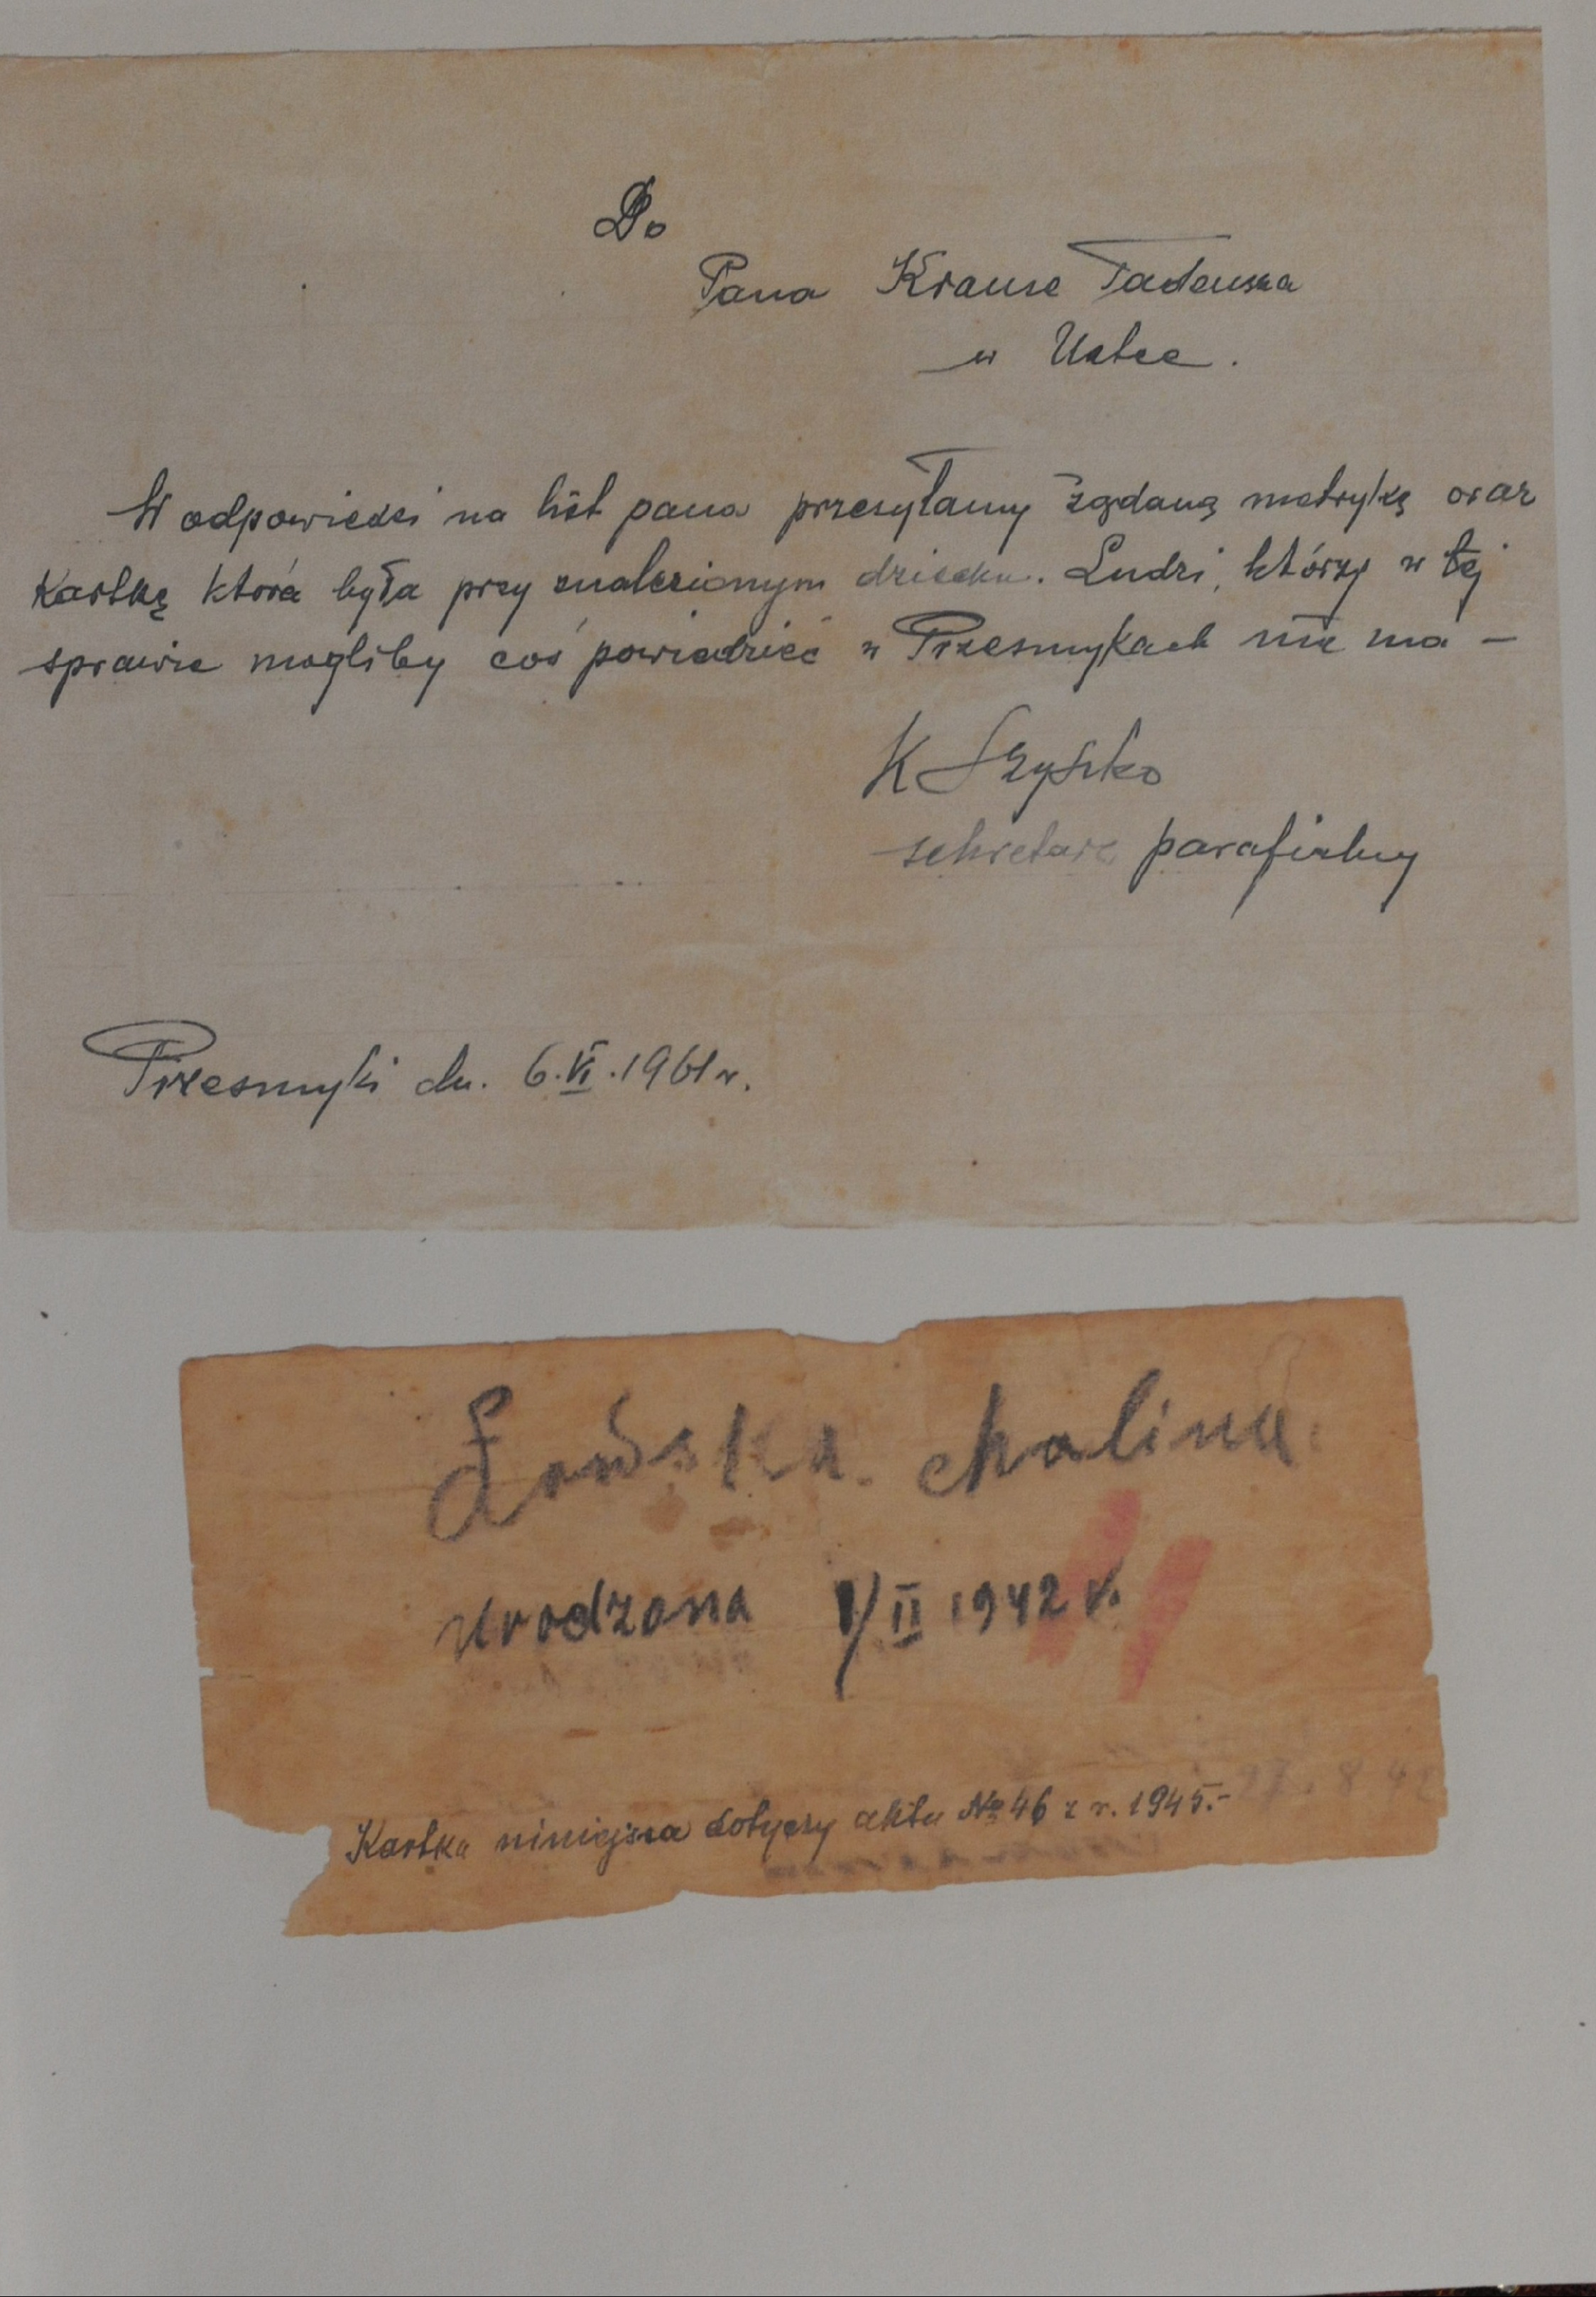 Do
Pana Krause Tadeusza
w Ustce.
W odpowiedzi na list pana przesyłamy żądaną metrykę oraz
Kartkę która była przy znalezionym dziecku. Ludzi, którzy w tej
sprawie mogliby coś powiedzieć w Przesmykach nie ma –
K Szyszko
sekretarz parafialny
Przesmyki dn. 6.VI.1961 r.
Halina
urodzona 1/II 1942 r.
Kartka niniejsza dotyczy aktu No 46 z r. 1945.-